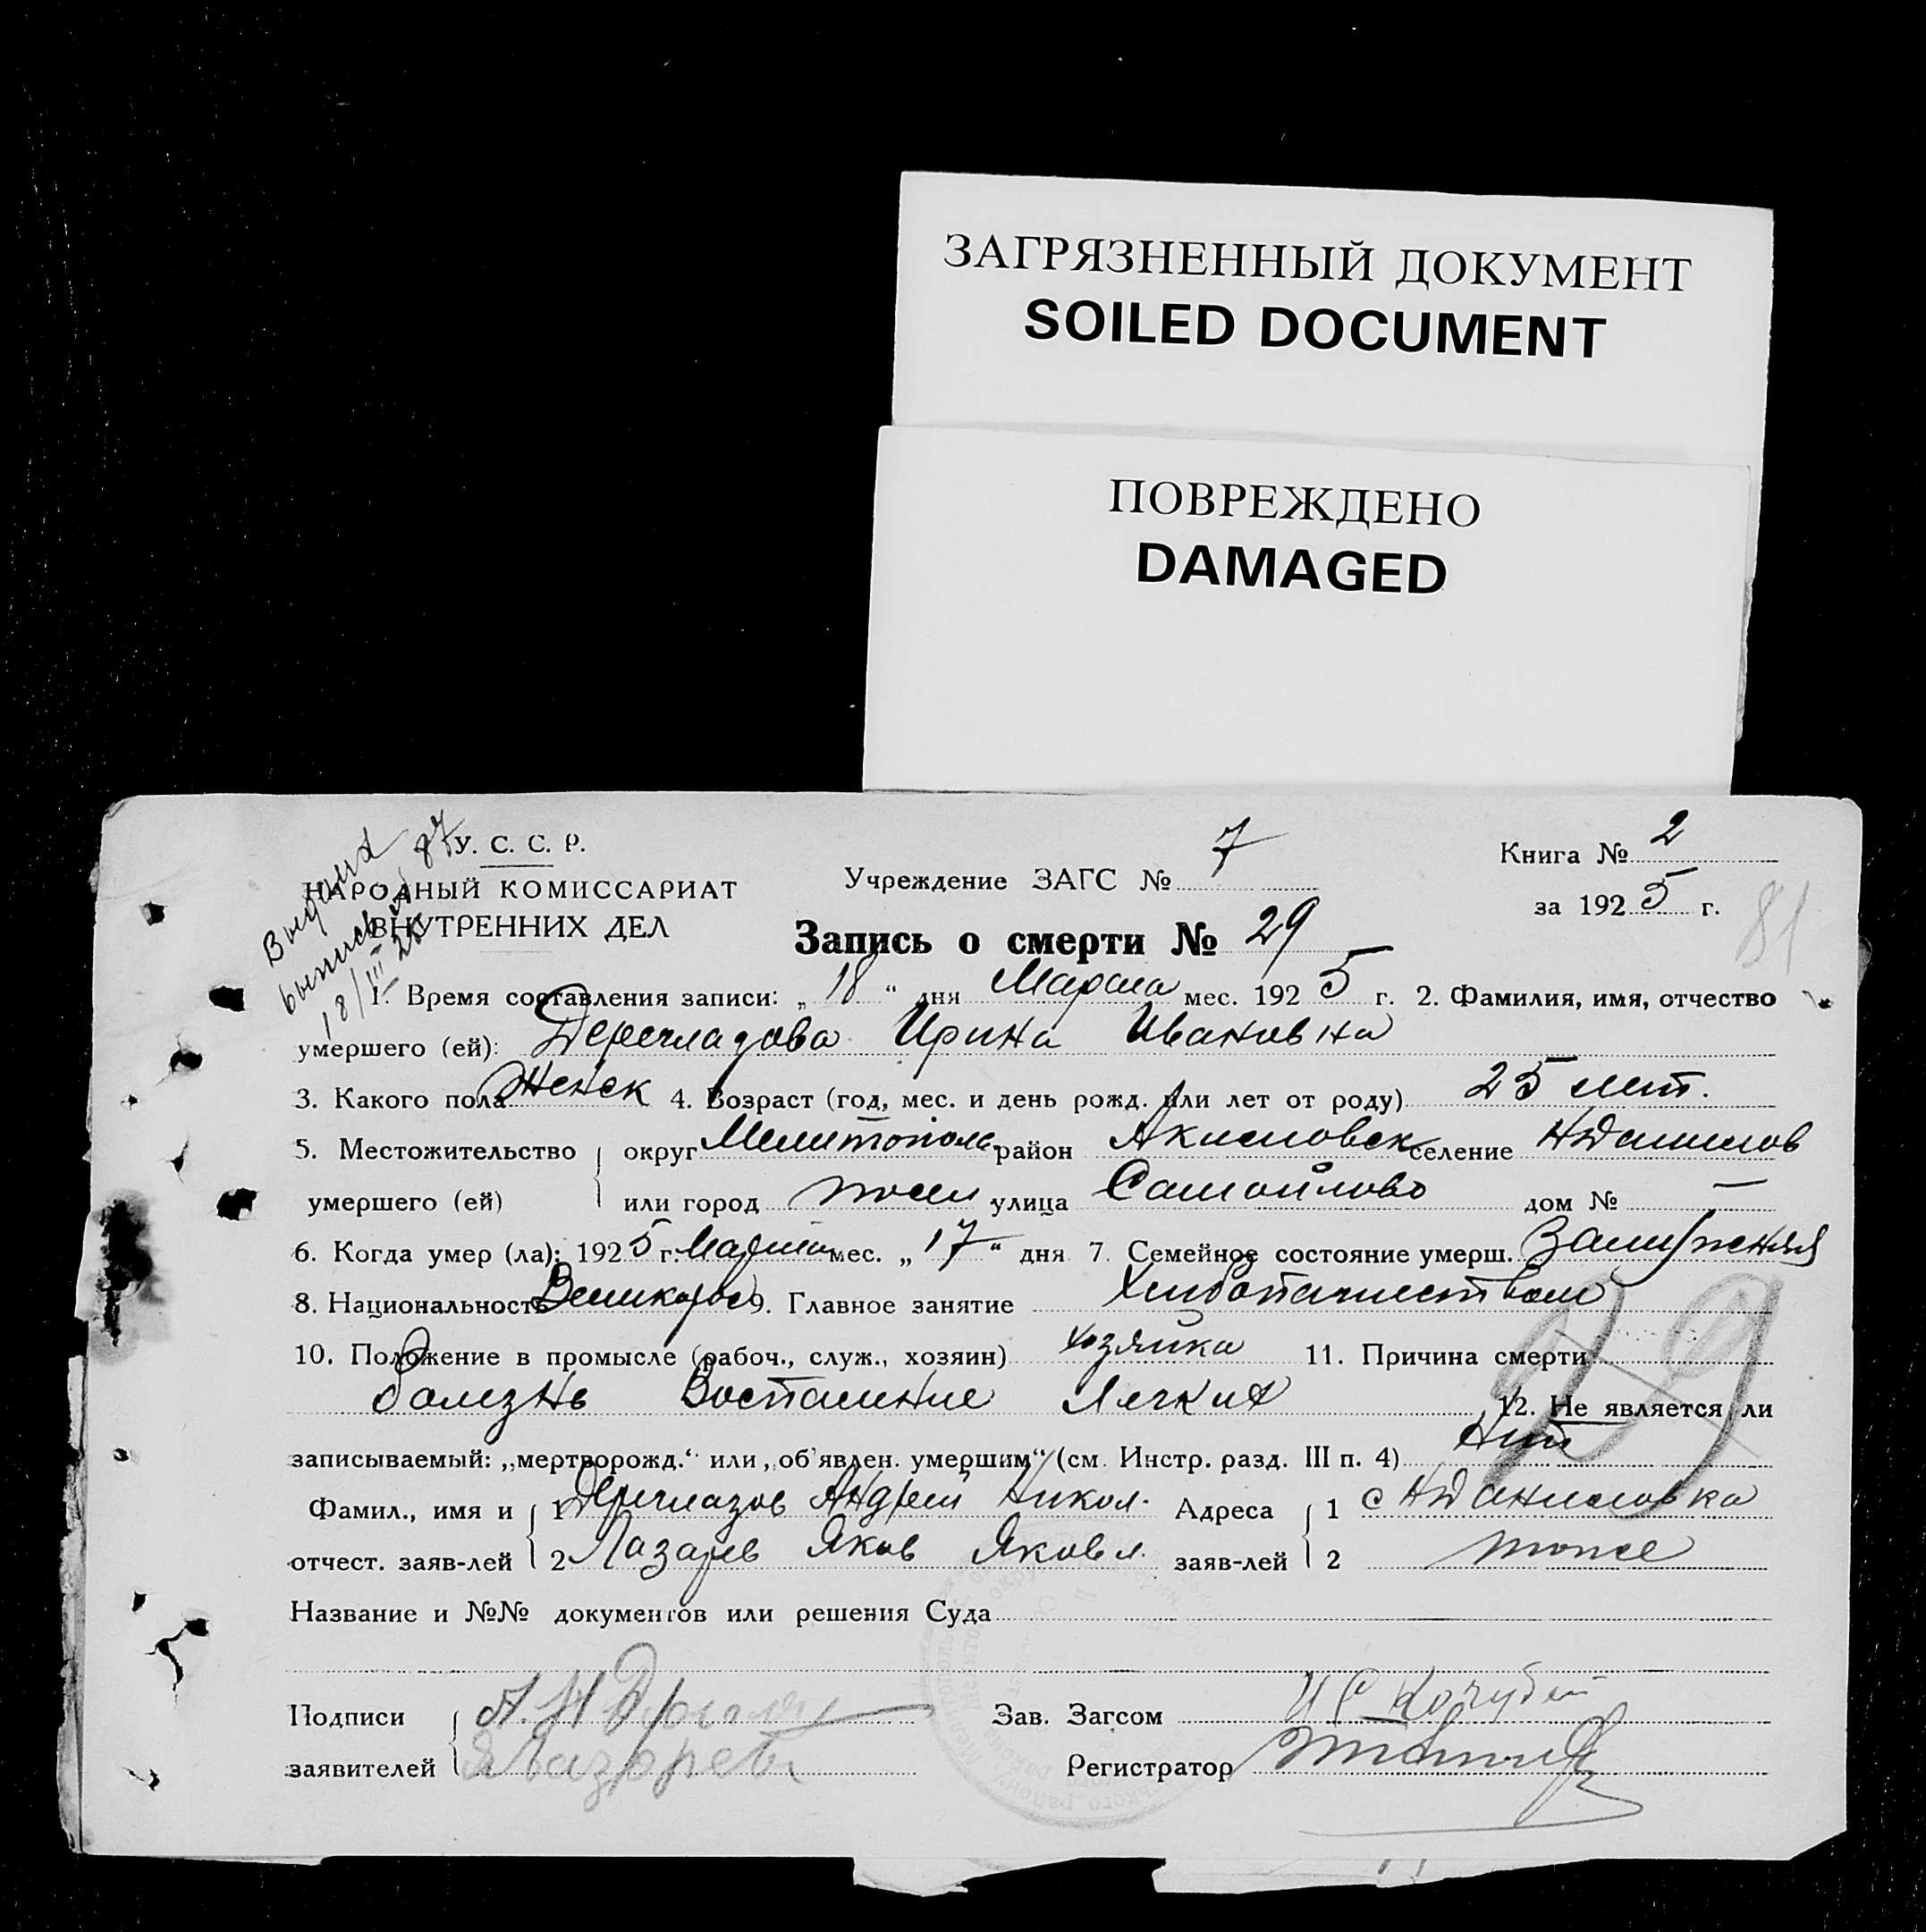 ЗАГРЯЗНЕННЫЙ ДОКУМЕНТ
SOILED DOCUMENT
ПОВРЕЖДЕНО
DAMAGED
Выдана
выпись № 87
18/III 25
У. С. С. Р.
НАРОДНЫЙ КОМИССАРИАТ
ВНУТРЕННИХ ДЕЛ
Учреждение ЗАГС № 7
Книга № 2
за 1925 г.
81
Запись о смерти № 29
1. Время составления записи: „18“ дня Марта мес. 1925 г. 2. Фамилия, имя, отчество
умершего (ей): Ирина Ивановна
3. Какого пола Женск 4. Возраст (год, мес. и день рожд. или лет от роду) 25 лет.
5. Местожительство округ Мелитополь район Акимовск селение НДанилов
умершего (ей) или город улица Самойлово дом № —
6. Когда умер (ла): 1925 г. Марта мес. „17“ дня 7. Семейное состояние умерш. Замужняя
8. Национальность Великорос 9. Главное занятие Хлебопашеством
10. Положение в промысле (рабоч., служ., хозяин) хозяйка 11. Причина смерти
болезнь Воспаление Легких 12. Не является ли
записываемый: „мертворожд.“ или „об'явлен. умершим“ (см. Инстр. разд. III п. 4) Нет
29
Фамил., имя и 1 Андрей Никол. Адреса 1 с НДаниловка
отчест. заяв-лей 2 Лазарев Яков Яковл. заяв-лей 2 тоже
Название и №№ документов или решения Суда
Подписи А. Н Зав. Загсом И С Кочубей
заявителей ЯЛазарев Регистратор